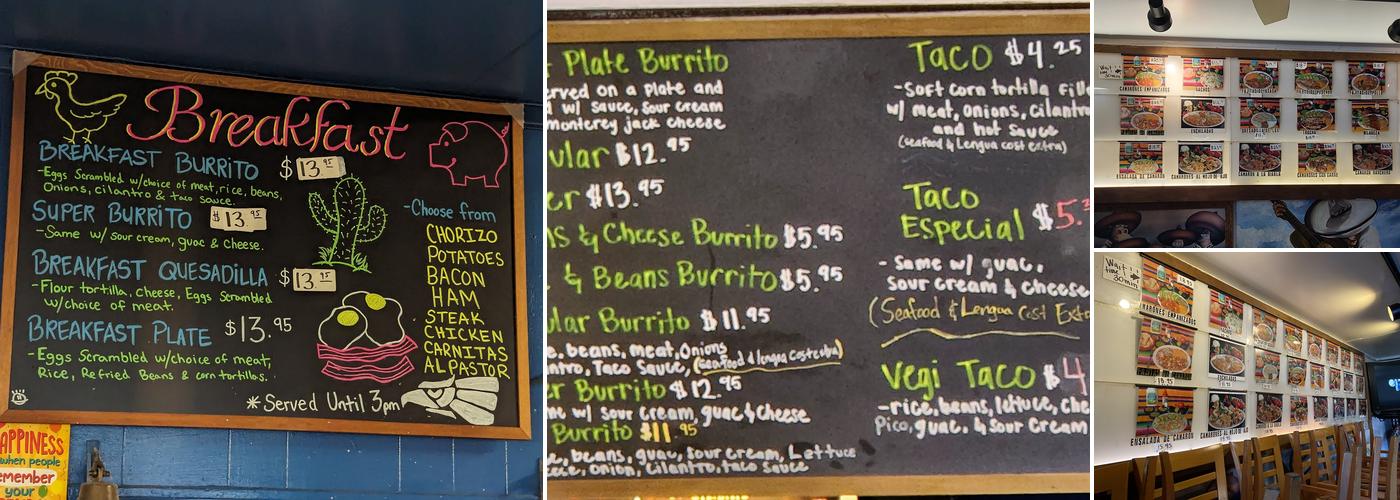 Breakfast
BREAKFAST BURRITO $13.95
-Eggs Scrambled w/choice of meat, rice, beans,
Onions, cilantro & taco sauce.
SUPER BURRITO $13.95
-Same w/sour cream, guac & cheese.
BREAKFAST QUESADILLA $13.95
-Flour tortilla, cheese, Eggs Scrambled
w/choice of meat.
BREAKFAST PLATE $13.95
-Eggs Scrambled w/choice of meat,
Rice, Refried Beans & corn tortillas.
-Choose from
CHORIZO
POTATOES
BACON
HAM
STEAK
CHICKEN
CARNITAS
AL PASTOR
*Served Until 3pm
APPINESS
when people
emember
your
Plate Burrito
erved on a plate and
d w/ Sauce, Sour cream
monterey jack cheese
ular $12.95
er $13.95
ns & Cheese Burrito $5.95
& Beans Burrito $5.95
ular Burrito $11.95
e, beans, meat, Onions
ntro, Taco Sauce, (Seafood & lengua cost extra)
er Burrito $12.95
me w/ sour cream, guac & cheese
Burrito $11.95
e, beans, guac, sour cream, Lettuce
ese, Onion, Cilantro, taco sauce
Taco $4.25
-Soft corn tortilla fille
w/ meat, onions, cilantro
and hot sauce
(seafood & Lengua cost extra)
Taco
Especial $5.
- Same w/ guac,
sour cream & cheese
(Seafood & Lengua Cost Extra
Vegi Taco $4
-rice, beans, lettuce, che
Pico, guac, & sour cream
Wait
time
30min
CAMARONES EMPANIZADOS
NACHOS
ENCHILADAS
ENSALADA DE CAMARON
CAMARONES AL MOJO DE AJO
Wait
time
30min
CAMARONES EMPANIZADOS
ENCHILADAS
ENSALADA DE CAMARON
CAMARONES AL MOJO DE AJO